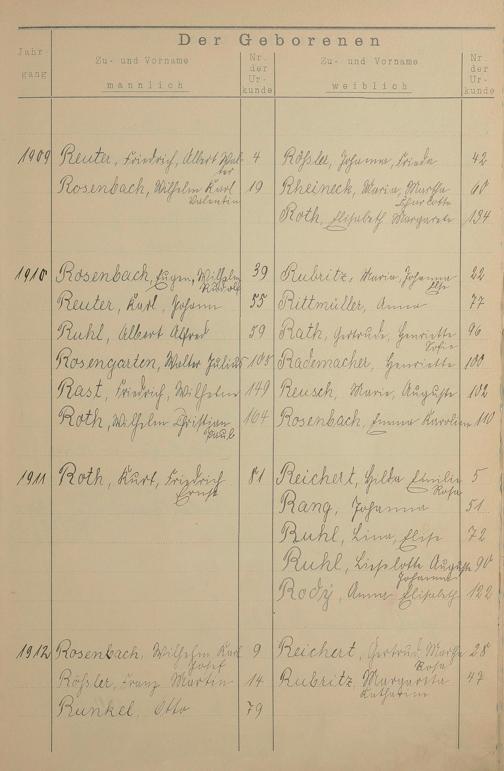 Der Geborenen
Jahr-
gang
Zu- und Vorname
männlich
Nr.
der
Ur-
kunde
Zu- und Vorname
weiblich
Nr.
der
Ur-
kunde
1909 Reuter, Friedrich, Albert Wal- 4 Rößler, Johanna, Frieda 42
ter
Rosenbach, Wilhelm Karl 19 Rheineck, Maria, Martha 60
Valentin Charlotte
Roth, Elisabeth Margarete 194
1910 Rosenbach, Eugen, Wilhelm 39 Rubritz, Maria, Johanna 22
Rudolf Else
Reuter, Karl, Johann 55 Rittmüller, Anna 77
Ruhl, Albert Alfred 59 Rath, Gertrude, Henriette 96
Sofie
Rosengarten, Walter Julius 108 Rademacher, Henriette 100
Rast, Friedrich, Wilhelm 149 Reusch, Marie, Auguste 102
Roth, Wilhelm Christian 164 Rosenbach, Emma Karoline 110
Paul
1911 Roth, Kurt, Friedrich 81 Reichert, Hilda Emilie 5
Ernst Rosa
Rang, Johanna 51
Ruhl, Lina, Elise 72
Ruhl, Lieselotte Auguste 90
Johanna
Rody, Anna Elisabeth 122
1912 Rosenbach, Wilhelm Karl 9 Reichert, Gertrud, Martha 28
Josef Rosa
Rößler, Franz Martin 14 Rubritz, Margareta 47
Katharina
Runkel, Otto 79